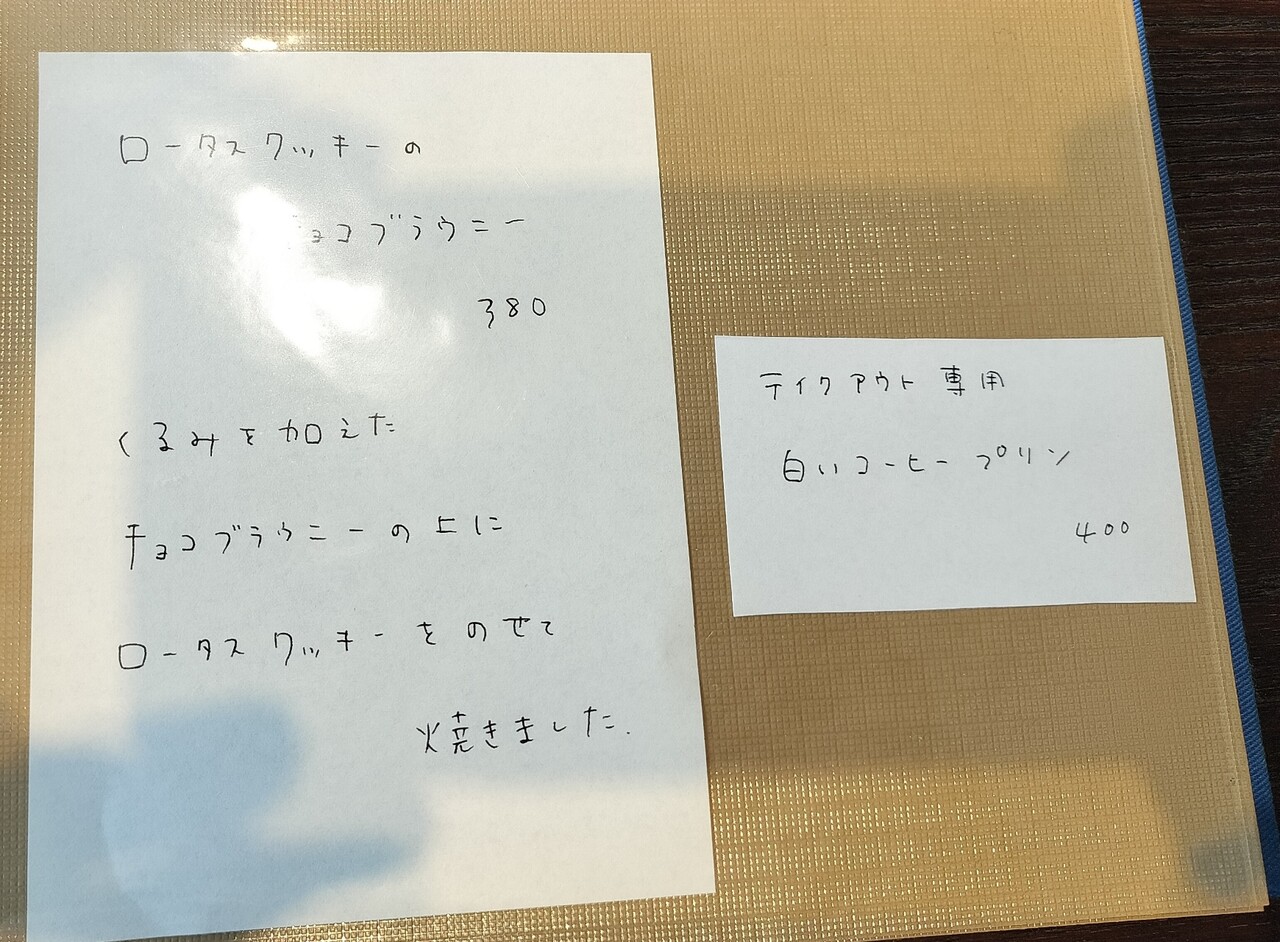 ロータスクッキーの
チョコブラウニー
380
くるみを加えた
チョコブラウニーの上に
ロータスクッキーをのせて
焼きました.
テイクアウト専用
白いコーヒープリン
400